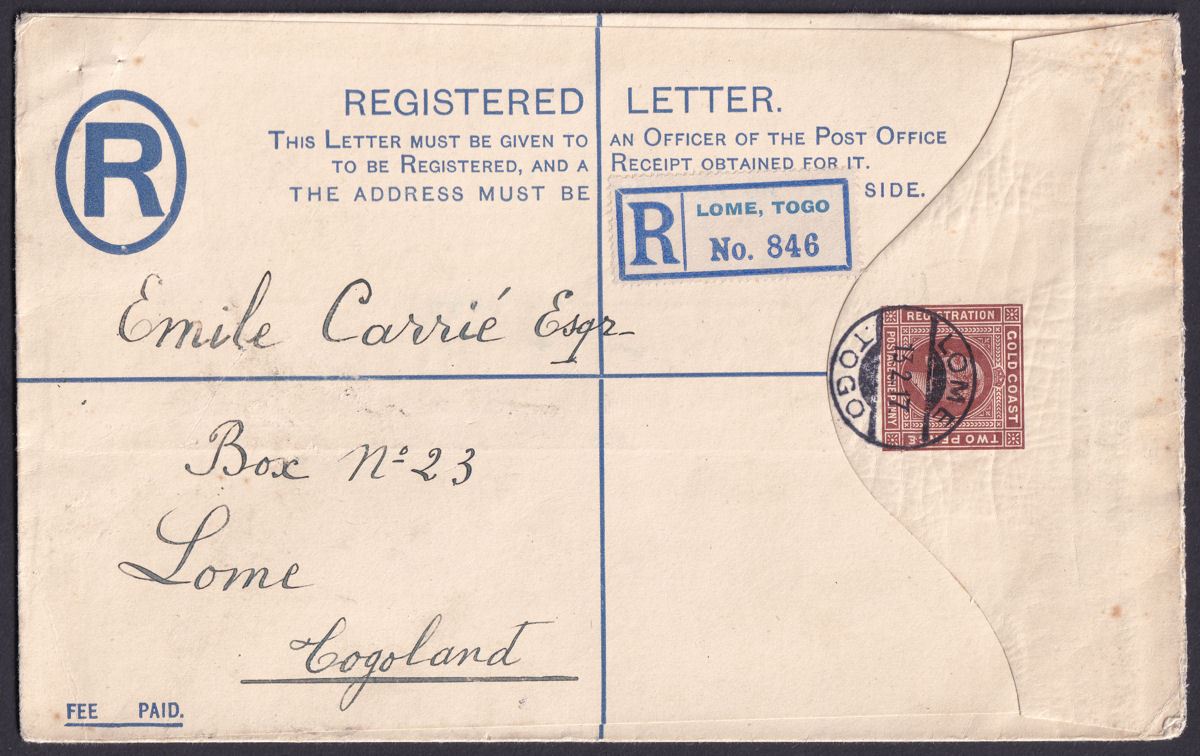 REGISTERED LETTER.
THIS LETTER MUST BE GIVEN TO AN OFFICER OF THE POST OFFICE
TO BE REGISTERED, AND A RECEIPT OBTAINED FOR IT.
THE ADDRESS MUST BE SIDE.
R
R
LOME, TOGO
No. 846
Emile Carrié Esqr
Box No 23
Lome
Togoland
FEE PAID.
REGISTRATION
GOLD COAST
TWO PENCE
POSTAGE ONE PENNY
LOME
2.17
TOGO